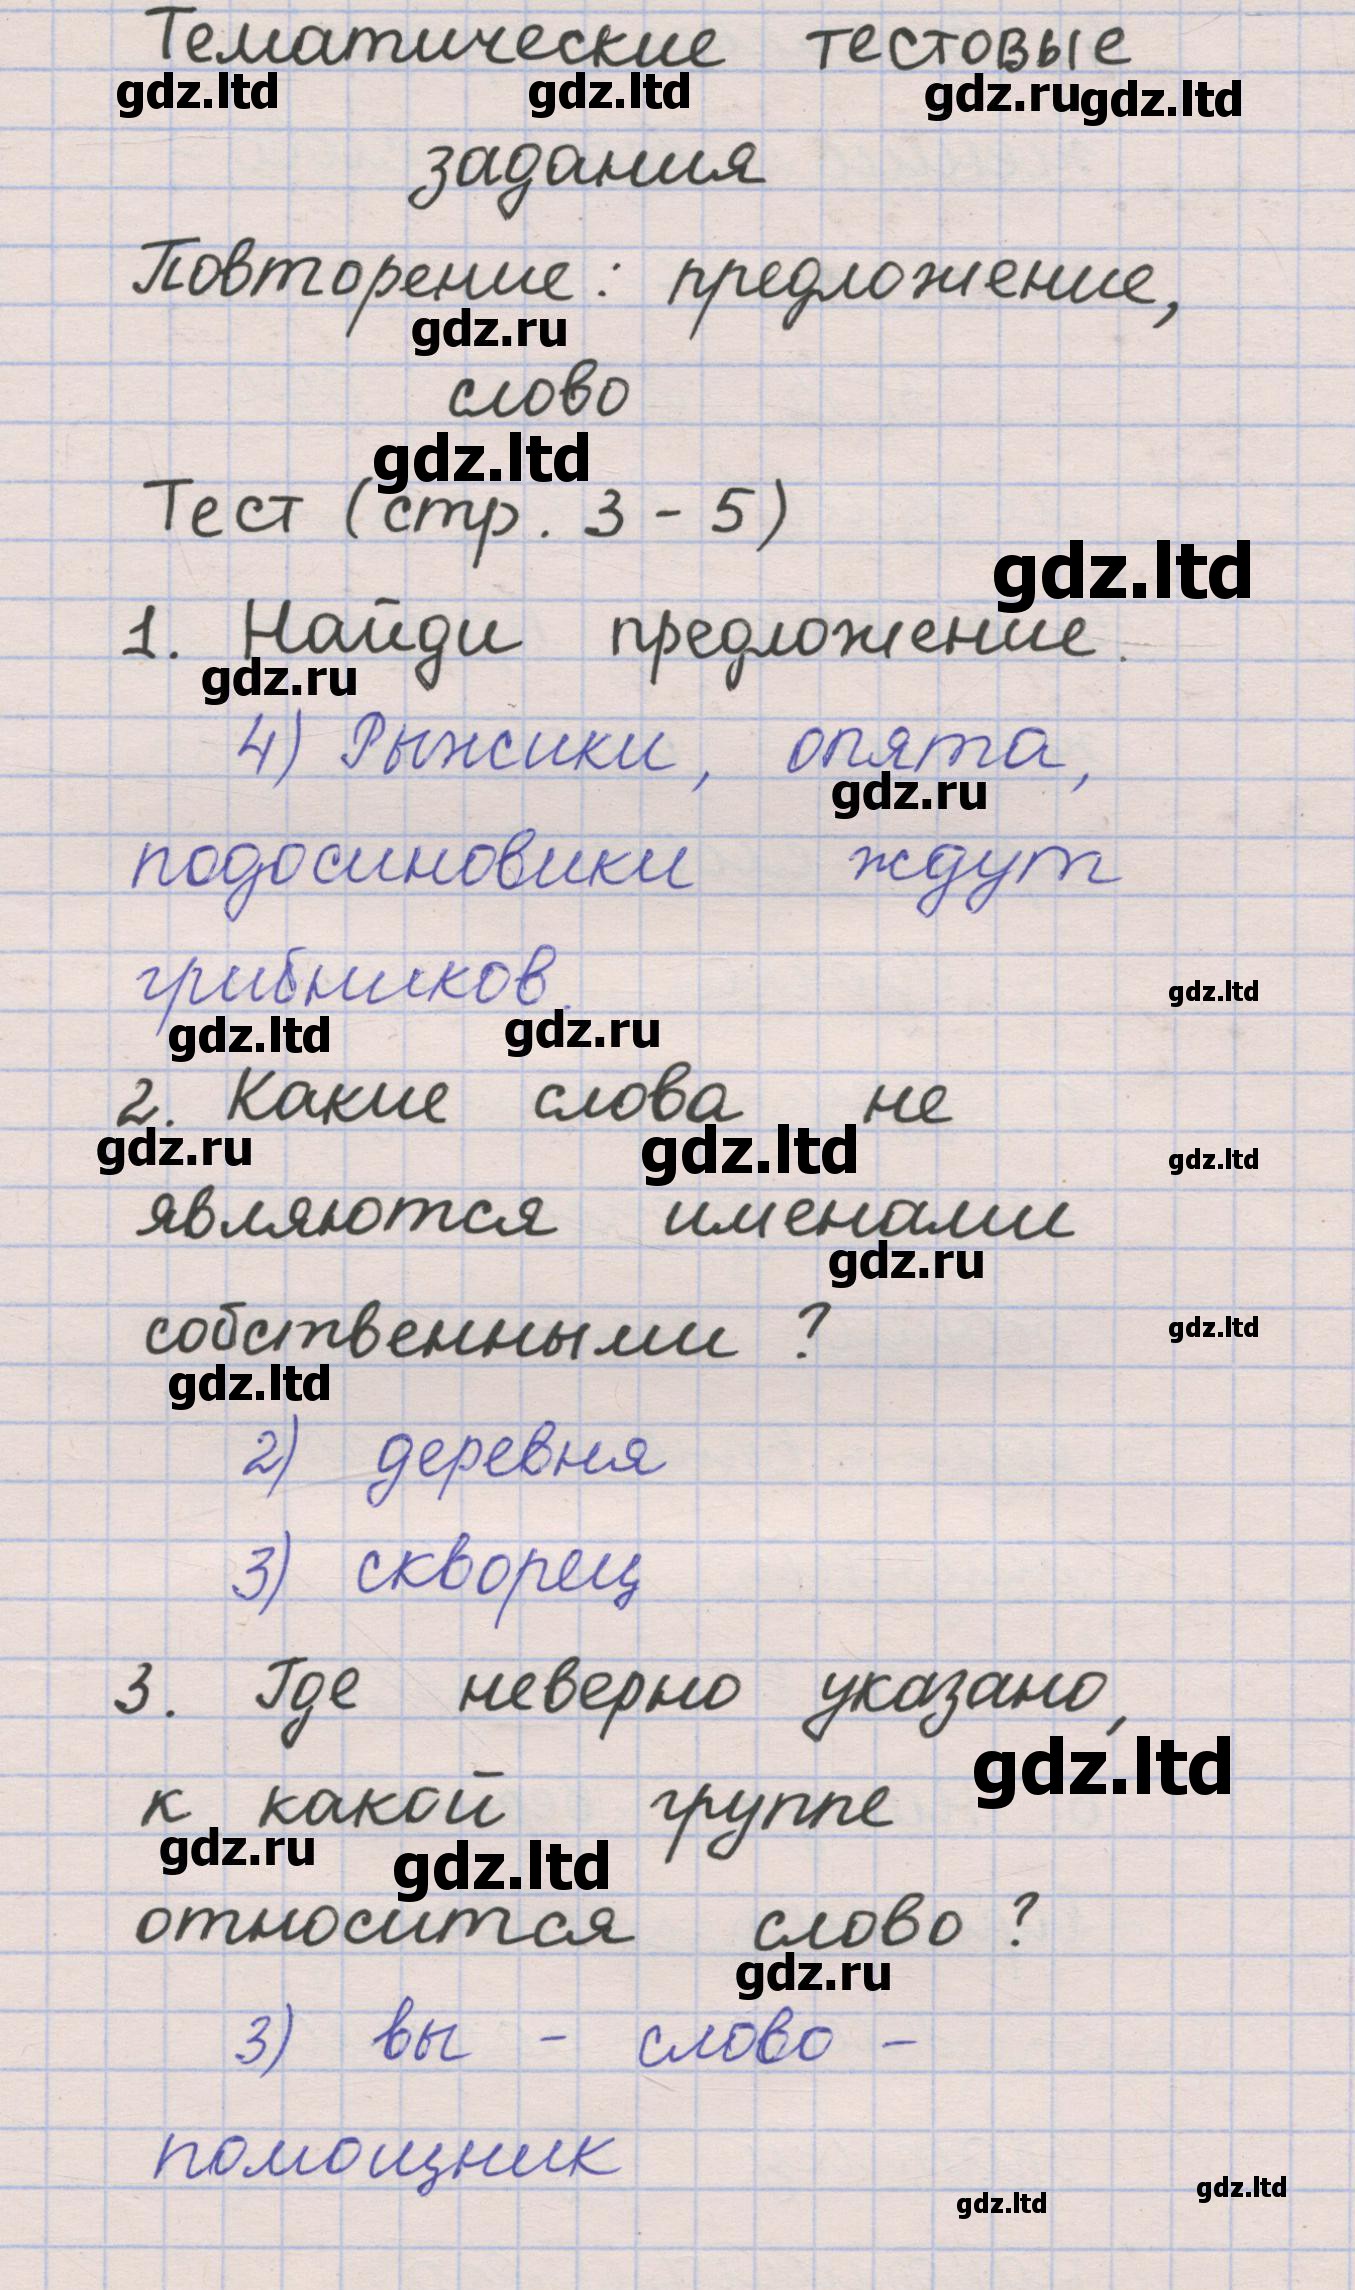 Тематические тестовые
gdz.ltd gdz.ltd gdz.ru gdz.ltd
задания
Повторение: предложение,
gdz.ru
слово
gdz.ltd
Тест (стр. 3 - 5)
gdz.ltd
1. Найди предложение.
gdz.ru
4) Рыжики, опята,
gdz.ru
подосиновики ждут
грибников.
gdz.ltd
gdz.ltd gdz.ru
2. Какие слова не
gdz.ru gdz.ltd gdz.ltd
являются именами
gdz.ru
собственными?
gdz.ltd
gdz.ltd
2) деревня
3) скворец
3. Где неверно указано,
gdz.ltd
к какой группе
gdz.ru gdz.ltd
относится слово?
gdz.ru
3) вы - слово -
помощник
gdz.ltd gdz.ltd